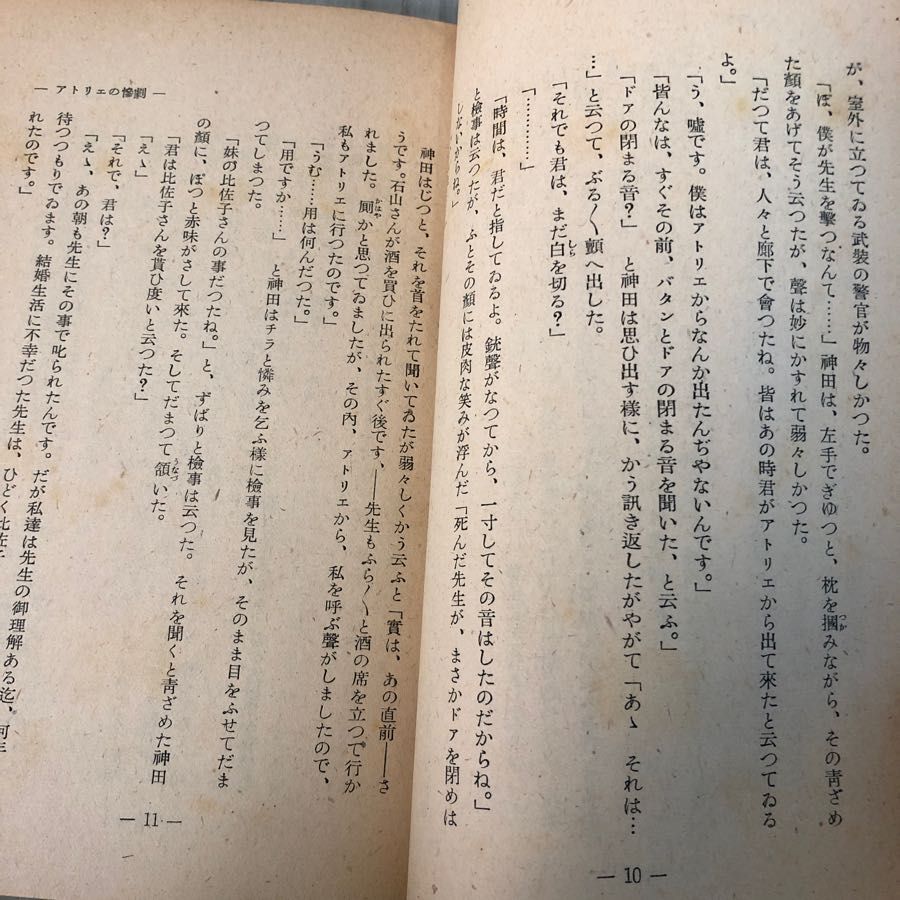 が、室外に立つてゐる武裝の警官が物々しかつた。
「ぼ、僕が先生を擊つなんて……」神田は、左手でぎゆつと、枕を摑みながら、その靑ざめ
た顏をあげてそう云つたが、聲は妙にかすれて弱々しかつた。
「だつて君は、人々と廊下で會つたね。皆はあの時君がアトリエから出て來たと云つてゐる
よ。」
「う、噓です。僕はアトリエからなんか出たんぢやないんです。」
「皆んなは、すぐその前、バタンとドアの閉まる音を聞いた、と云ふ。」
「ドアの閉まる音？」　と神田は思ひ出す樣に、かう訊き返したがやがて「あゝ　それは…
…」と云つて、ぶる〱顫へ出した。
「それでも君は、まだ白を切る？」
「…………」
「時間は、君だと指してゐるよ。銃聲がなつてから、一寸してその音はしたのだからね。」
と檢事は云つたが、ふとその顏には皮肉な笑みが浮んだ「死んだ先生が、まさかドアを閉めは
しないからね。」
— 10 —
— アトリエの慘劇 —
神田はじつと、それを首をたれて聞いてゐたが弱々しくかう云ふと「實は、あの直前——さ
うです。石山さんが酒を買ひに出られたすぐ後です、——先生もふら〱と酒の席を立つて行か
れました。厠かと思つてゐましたが、その內、アトリエから、私を呼ぶ聲がしましたので、
私もアトリエに行つたのです。」
「うむ……用は何んだつた。」
「用ですか……」　と神田はチラと憐みを乞ふ樣に檢事を見たが、そのまま目をふせてだま
つてしまつた。
「妹の比佐子さんの事だつたね。」と、ずばりと檢事は云つた。　それを聞くと靑ざめた神田
の顏に、ぽつと赤味がさして來た。そしてだまつて頷いた。
「君は比佐子さんを貰ひ度いと云つた？」
「えゝ」
「それで、君は？」
「えゝ、あの朝も先生にその事で叱られたんです。だが私達は先生の御理解ある迄、何年
待つつもりでゐます。結婚生活に不幸だつた先生は、ひどく比佐子
れたのです。」
— 11 —